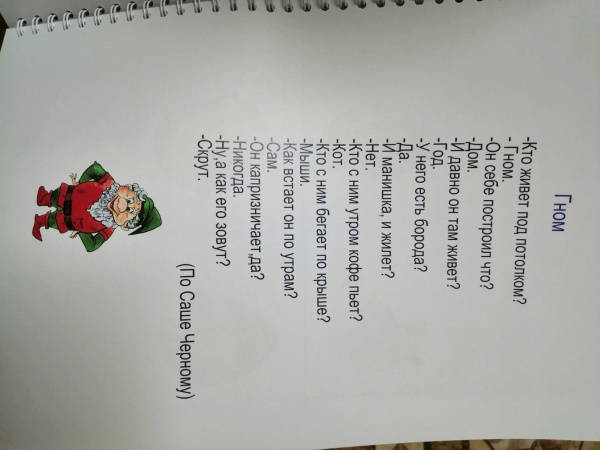 Гном
-Кто живет под потолком?
- Гном.
-Он себе построил что?
-Дом.
-И давно он там живет?
-Год.
-У него есть борода?
-Да.
-И манишка, и жилет?
-Нет.
-Кто с ним утром кофе пьет?
-Кот.
-Кто с ним бегает по крыше?
-Мыши.
-Как встает он по утрам?
-Сам.
-Он капризничает,да?
-Никогда.
-Ну,а как его зовут?
-Скрут.
(По Саше Черному)